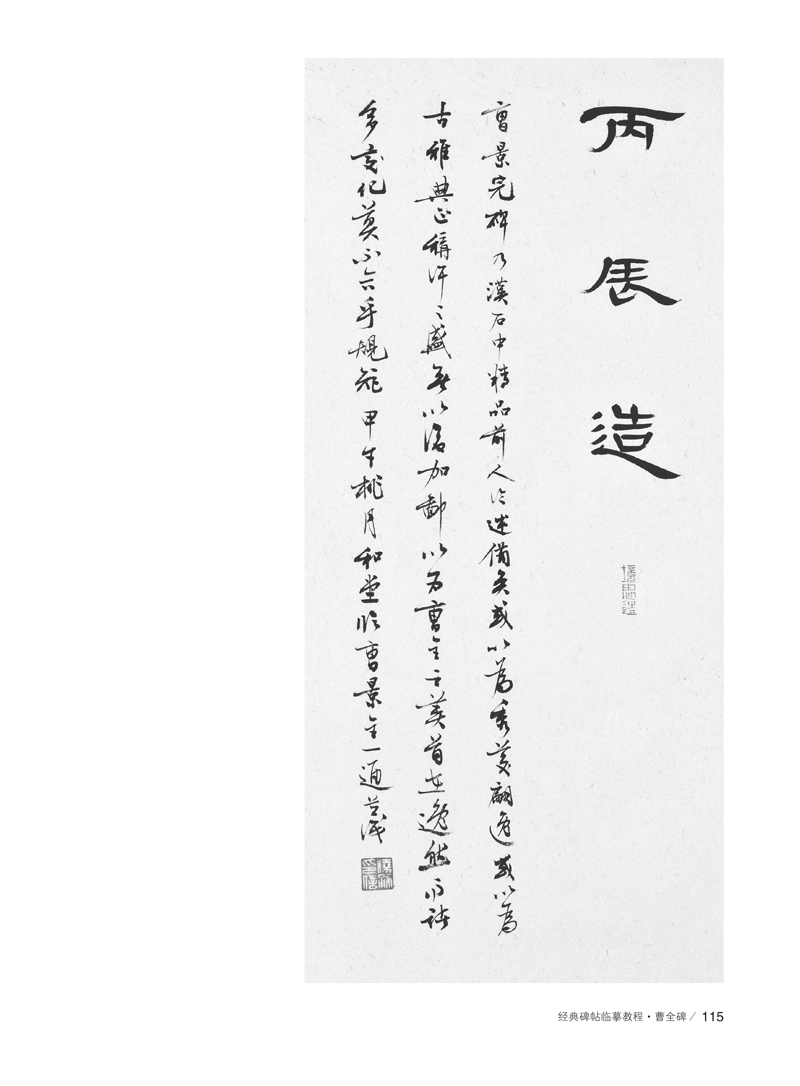 丙辰造
曹景完碑乃漢石中精品前人論述備矣或以為秀美翩逸或以為
古雅典正稱許之盛無以復加鄙以为曹全之美首在逸然而諸
多變化莫不合乎規矩甲午桃月和堂臨曹景全一通并識
经典碑帖临摹教程·曹全碑 / 115